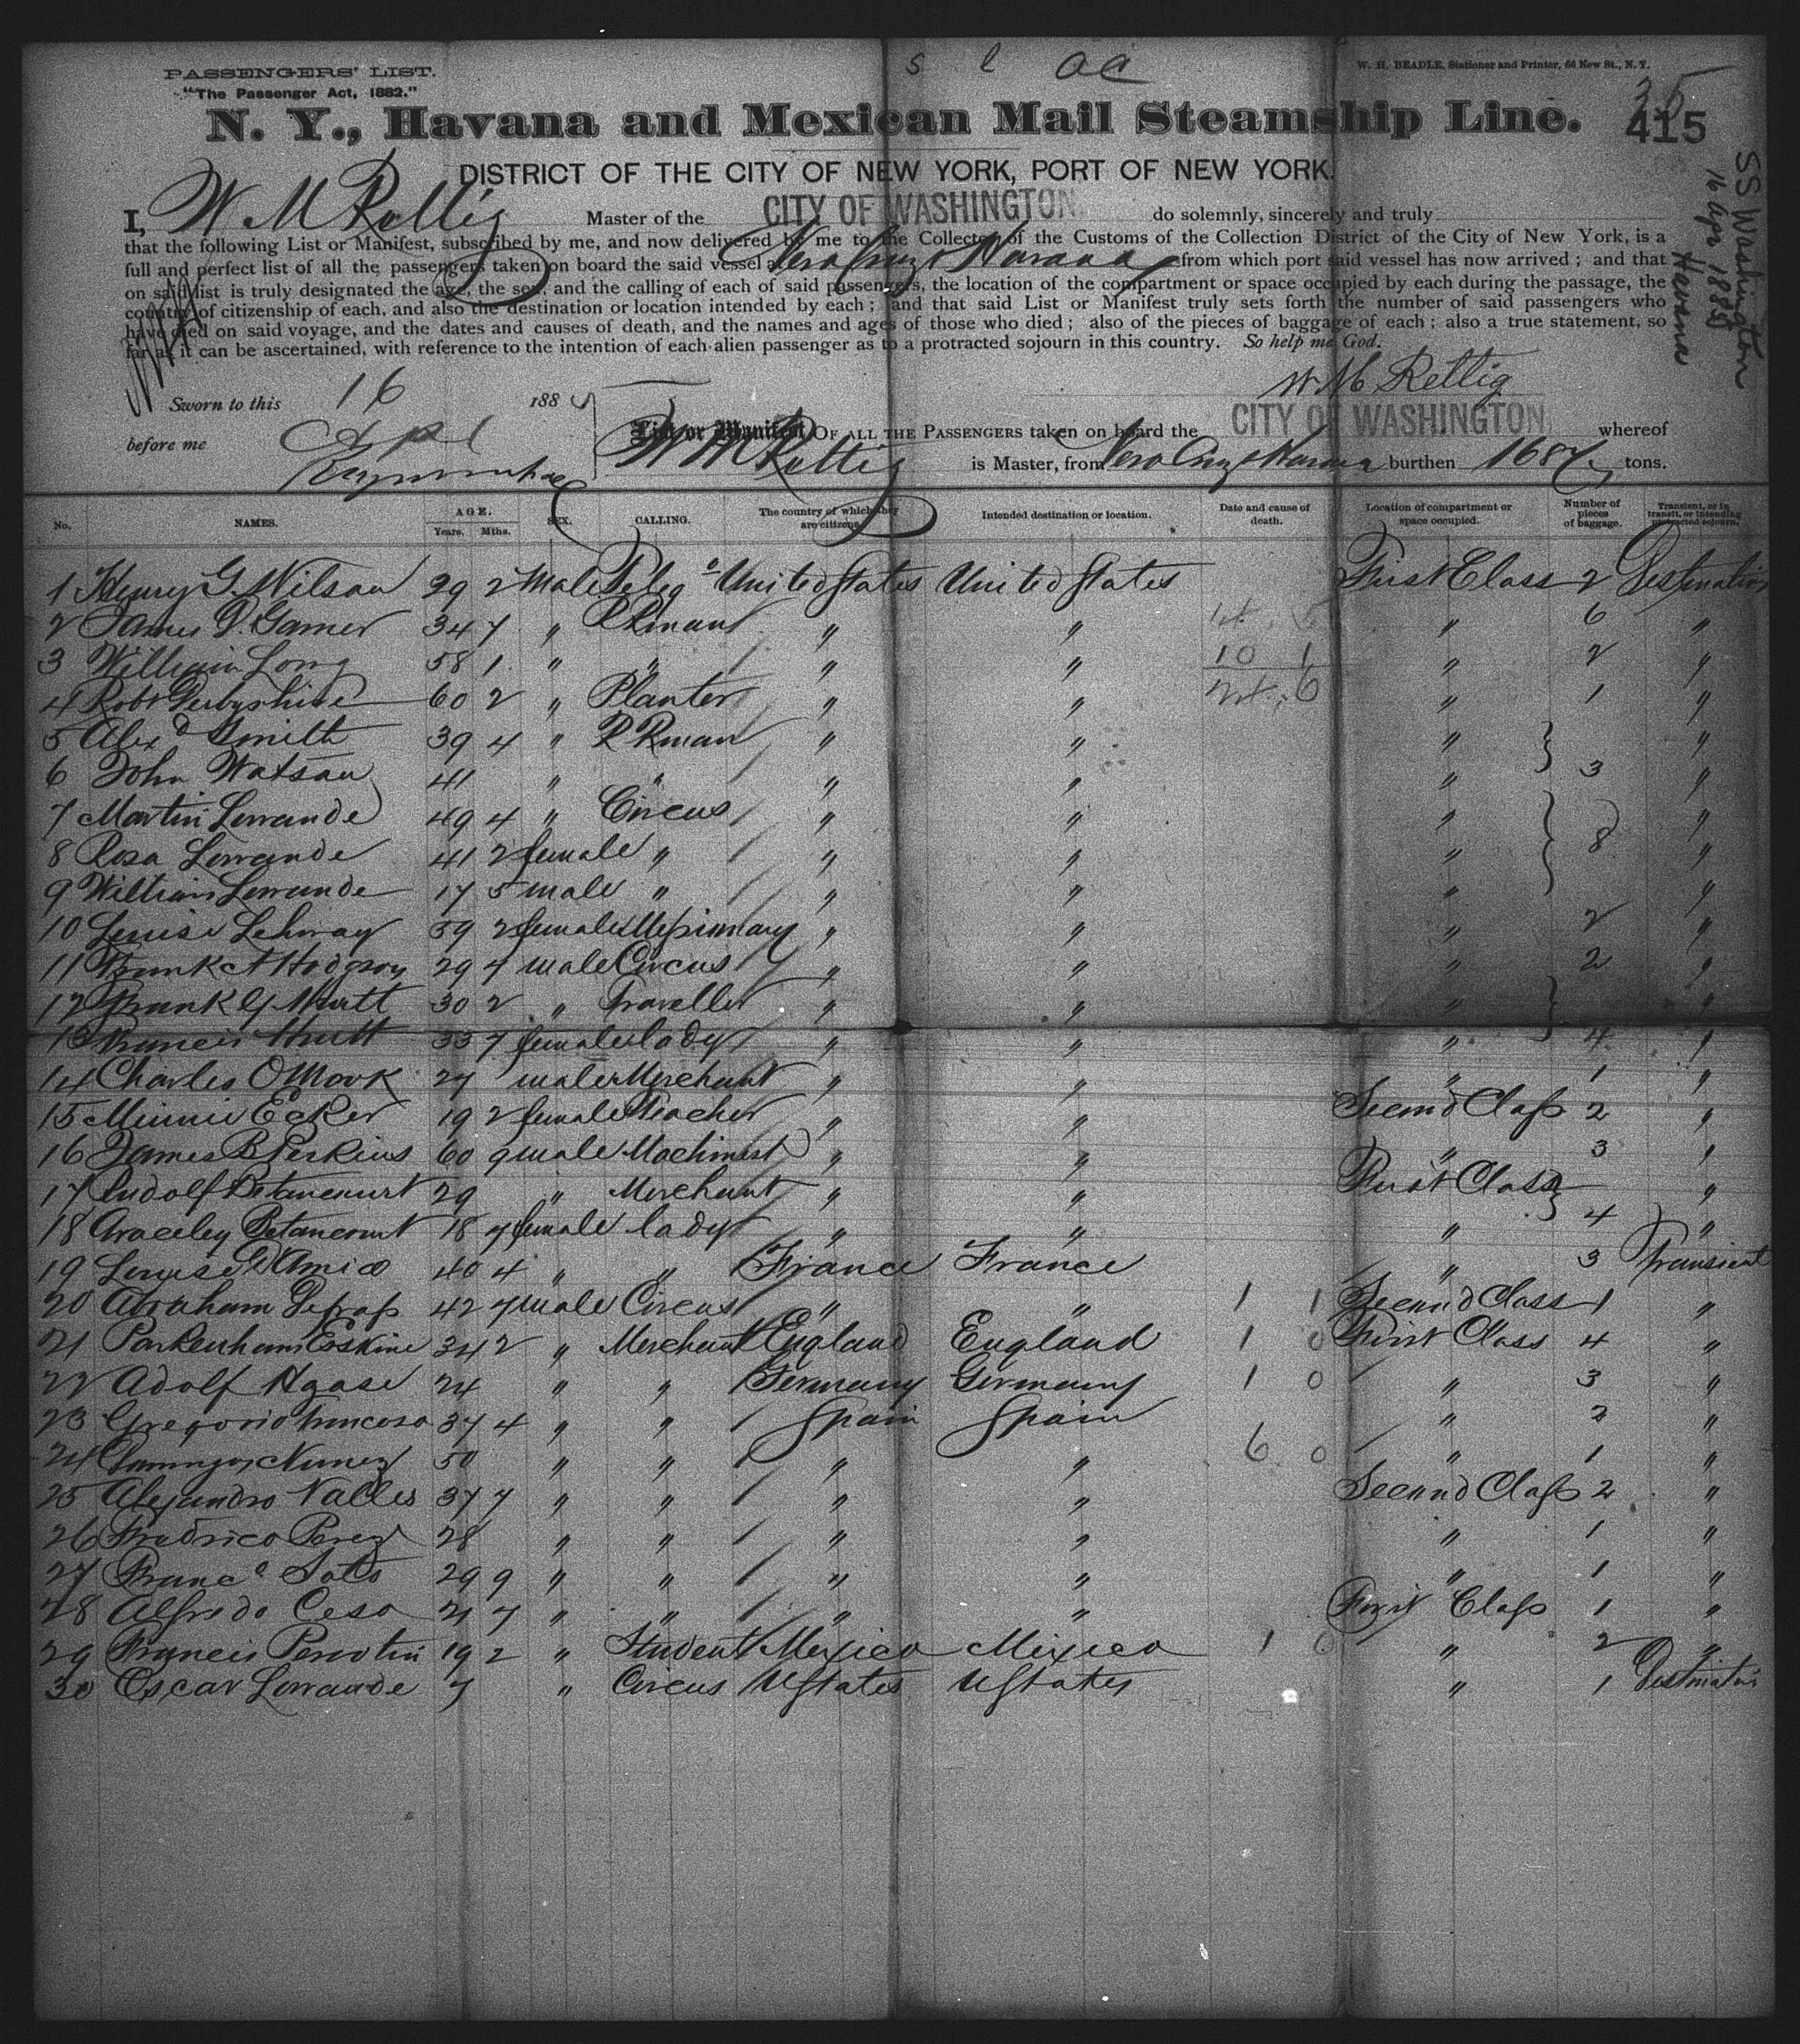 PASSENGERS' LIST.
"The Passenger Act, 1882."
W. H. BEADLE, Stationer and Printer, 66 New St., N. Y.
N. Y., Havana and Mexican Mail Steamship Line.
35
415
DISTRICT OF THE CITY OF NEW YORK, PORT OF NEW YORK.
SS Washington
16 Apr 1885
Havana
I, W M Rettig Master of the CITY OF WASHINGTON do solemnly, sincerely and truly
that the following List or Manifest, subscribed by me, and now delivered by me to the Collector of the Customs of the Collection District of the City of New York, is a
full and perfect list of all the passengers taken on board the said vessel at Vera Cruz & Havana from which port said vessel has now arrived; and that
on said list is truly designated the age, the sex, and the calling of each of said passengers, the location of the compartment or space occupied by each during the passage, the
country of citizenship of each, and also the destination or location intended by each; and that said List or Manifest truly sets forth the number of said passengers who
have died on said voyage, and the dates and causes of death, and the names and ages of those who died; also of the pieces of baggage of each; also a true statement, so
far as it can be ascertained, with reference to the intention of each alien passenger as to a protracted sojourn in this country. So help me God.
W M Rettig
Sworn to this 16 1885
before me Apl
List or Manifest OF ALL THE PASSENGERS taken on board the CITY OF WASHINGTON whereof
W M Rettig is Master, from Vera Cruz & Havana burthen 1684 tons.
No. NAMES. AGE. Years. Mths. SEX. CALLING. The country of which they are citizens. Intended destination or location. Date and cause of death. Location of compartment or space occupied. Number of pieces of baggage. Transient, or in transit, or intending protracted sojourn.
1 Henry G. Wilson 29 2 Male United States United States First Class 2 Destination
2 James D. Garner 34 7 " RRman " " " 6 "
3 William Long 58 1 " " " " " 2 "
4 Robt Derbyshire 60 2 " Planter " " " 1 "
5 Alexd Smith 39 4 " RRman " " " "
6 John Watson 41 " " " " " 3 "
7 Martin Lowande 49 4 " Circus " " " "
8 Rosa Lowande 41 2 female " " " " 8 "
9 William Lowande 17 5 male " " " " "
10 Louise Lehway 59 2 female Missionary " " " 2 "
11 Frank A Hodgson 29 4 male Circus " " " 2 "
12 Frank G Hurtt 30 2 " Traveller " " " "
13 Francis Hurtt 33 7 female lady " " " 4 "
14 Charles O Mook 27 male Merchant " " " 1 "
15 Minnie Ecker 19 2 female Teacher " " Second Class 2 "
16 James B Perkins 60 9 male Machinist " " " 3 "
17 Rudolf Betancourt 29 " Merchant " " First Class "
18 Araceley Betancourt 18 7 female lady " " " 4 "
19 Louise D'Amico 40 4 " " France France " 3 Transient
20 Abraham 42 7 male Circus " " 1 1 Second Class 1 "
21 Parkenham Erskine 34 2 " Merchant England England 1 0 First Class 4 "
22 Adolf Haase 24 " " Germany Germany 1 0 " 3 "
23 Gregorio Troncoso 37 4 " " Spain Spain " 2 "
24 Domingos Nunez 50 " " " " 6 0 " 1 "
25 Alejandro Valles 37 7 " " " " Second Class 2 "
26 Fradrico Perez 28 " " " " " 1 "
27 Franco Soto 29 9 " " " " " 1 "
28 Alfredo Cesa 21 7 " " " " First Class 1 "
29 Francis Perotin 19 2 " Student Mexico Mexico 1 0 " 2 "
30 Oscar Lowande 7 " Circus UStates UStates " 1 Destination